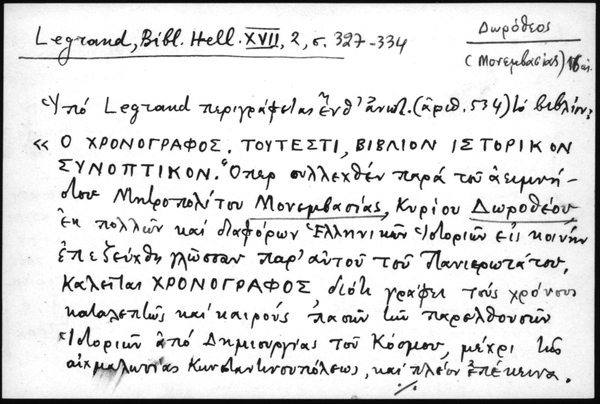 Legrand, Bibl. Hell. XVII, 2, σ. 327-334
Δωρόθεος
(Μονεμβασίας) 16 αι.
Ὑπό Legrand περιγράφεται ἔνθ' ἀνωτ. (ἀριθ. 534) τό βιβλίον:
« Ο ΧΡΟΝΟΓΡΑΦΟΣ. ΤΟΥΤΕΣΤΙ, ΒΙΒΛΙΟΝ ΙΣΤΟΡΙΚΟΝ
ΣΥΝΟΠΤΙΚΟΝ. Ὅπερ συλλεχθέν παρά τοῦ ἀειμνή-
στου Μητροπολίτου Μονεμβασίας, Κυρίου Δωροθέου
ἐκ πολλῶν καί διαφόρων Ἑλληνικῶν Ἱστοριῶν εἰς κοινήν
ἐπεζεύχθη γλῶσσαν παρ' αὐτοῦ τοῦ Πανιερωτάτου.
Καλεῖται ΧΡΟΝΟΓΡΑΦΟΣ διότι γράφει τούς χρόνους
καταλεπτῶς καί καιρούς πασῶν τῶν παρελθουσῶν
Ἱστοριῶν ἀπό Δημιουργίας τοῦ Κόσμου, μέχρι τῆς
αἰχμαλωσίας Κωνσταντινουπόλεως, καί πλέον ἐπέκεινα.